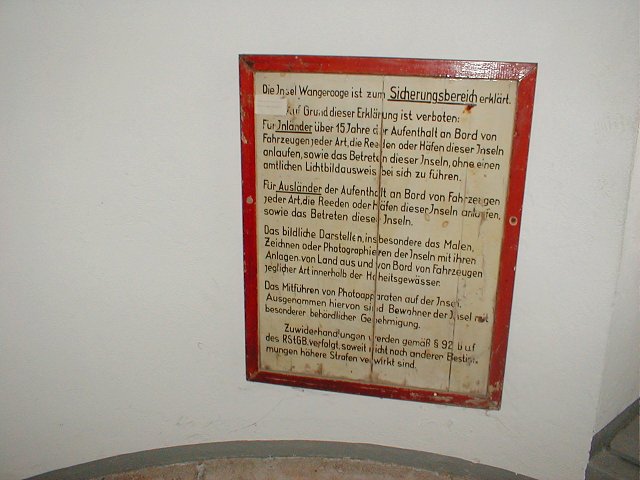 Die Insel Wangerooge ist zum Sicherungsbereich erklärt.
Auf Grund dieser Erklärung ist verboten:
Für Inländer über 15 Jahre der Aufenthalt an Bord von
Fahrzeugen jeder Art, die Reeden oder Häfen dieser Inseln
anlaufen, sowie das Betreten dieser Inseln, ohne einen
amtlichen Lichtbildausweis bei sich zu führen.
Für Ausländer der Aufenthalt an Bord von Fahrzeugen
jeder Art, die Reeden oder Häfen dieser Inseln anlaufen,
sowie das Betreten dieser Inseln.
Das bildliche Darstellen, insbesondere das Malen,
Zeichnen oder Photographieren der Inseln mit ihren
Anlagen von Land aus und von Bord von Fahrzeugen
jeglicher Art innerhalb der Hoheitsgewässer.
Das Mitführen von Photoapparaten auf der Insel.
Ausgenommen hiervon sind Bewohner der Insel mit
besonderer behördlicher Genehmigung.
Zuwiderhandlungen werden gemäß § 92 b u f
des RStGB. verfolgt, soweit nicht nach anderen Bestim-
mungen höhere Strafen verwirkt sind.